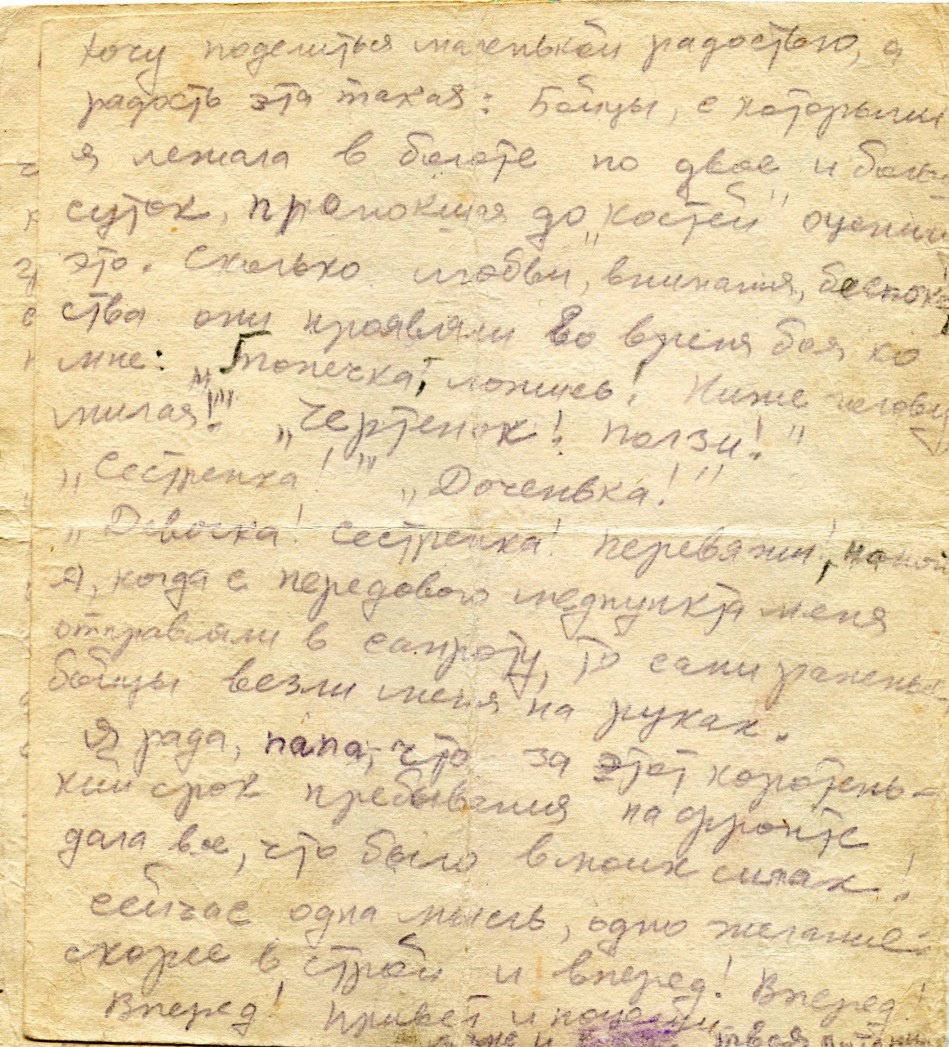 Хочу поделиться маленькой радостью, а
радость эта такая: Бойцы, с которыми
я лежала в болоте по двое и боль
суток, промокшая до „костей" оценили
это. Сколько любви, внимания, беспок
ства они проявляли во время боя ко
мне: „Тонечка, ложись! Ниже голову
милая!" „Чертенок! Ползи!"
„Сестренка!" „Доченька!"
„Девочка! Сестренка! Перевяжи!,
А, когда с передового медпункта меня
отправляли в санроту, то сами ранены
бойцы везли меня на руках.
Я рада, папа, что за этот коротень-
кий срок пребывания на фронте
дала все, что было в моих силах!
Сейчас одна мысль, одно желание:
скорее в строй и вперед! Вперед!
Вперед! Привет и поцелуи
твоя